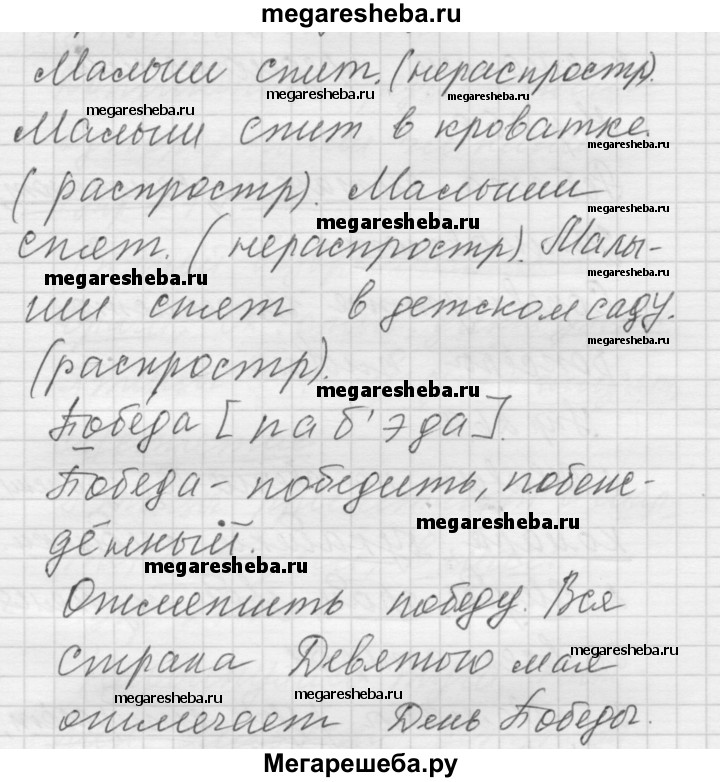 megaresheba.ru
Малыш спит. (нераспростр).
megaresheba.ru megaresheba.ru megaresheba.ru
Малыш спит в кроватке.
megaresheba.ru
(распростр). Малыши
megaresheba.ru megaresheba.ru
спят. (нераспростр). Малы-
megaresheba.ru megaresheba.ru
ши спят в детском саду.
megaresheba.ru
(распростр).
megaresheba.ru
Победа [паб'эда].
Победа - победить, побеж-
megaresheba.ru
дённый.
megaresheba.ru
Отметить победу. Вся
страна Девятого мая
megaresheba.ru
megaresheba.ru megaresheba.ru
отмечает День Победы.
Мегарешеба.ру